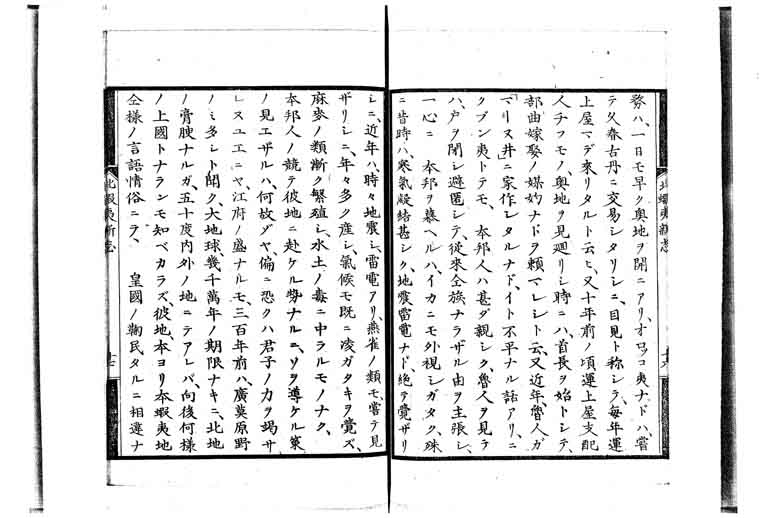 務ハ、一日モ早ク奥地ヲ開ニアリ、オロッコ夷ナドハ、嘗
テ久春古丹ニ交易シタリシニ、目見ト称シテ、毎年運
上屋マデ来リタルト云ヒ、又十年前ノ頃運上屋支配
人チフモノ、奥地ヲ見廻リシ時ニハ、首長ヲ始トシテ、
部曲嫁娶ノ媒妁ナドヲ頼マレシト云、又近年、魯人ガ
「マリヌ井」ニ家作シタルナド、イト不平ナル話アリ、ニ
クブン夷トテモ、本邦人ハ甚ダ親シク、魯人ヲ見テ
ハ、戸ヲ閉シ避匿シテ、従来仝族ナラザル由ヲ主張シ、
一心ニ 本邦ヲ慕ヘルハ、イカニモ外視シガタク、殊
ニ昔時ハ、寒氣凝結甚シク、地震雷電ナド、絶テ覺ザリ
シニ、近年ハ、時々地震シ、雷電アリ、燕雀ノ類モ、嘗テ見
ザリシニ、年々多ク産シ、氣候モ既ニ凌ガタキヲ覺ズ、
麻麥ノ類漸ク繁殖シ、水土ノ毒ニ中ラルモノナク、
本邦人ノ競テ彼地ニ赴ケル勢ナルニ、ソヲ導ケル策
ノ見エザルハ、何故ゾヤ、偏ニ恐クハ君子ノ力ヲ竭サ
レスユエニヤ、江府ノ盛ナルモ、三百年前ハ、廣莫原野
ノミ多シト聞ク、大地球幾千萬年ノ期限ナキニ、北地
ノ膏腴ナルガ、五十度内外ノ地ニテアレバ、向後何様
ノ上國トナランモ知ベカラズ、彼地、本ヨリ本蝦夷地
仝様ノ言語情俗ニテ、 皇國ノ鞠民タルニ相違ナ
北蝦夷新志
十六
北蝦夷新志
十七